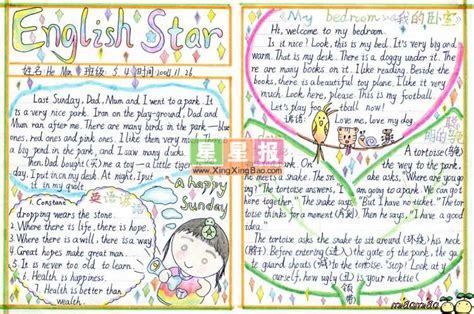 English Star
姓名 He Min 班级 5.4 时间 2008.11.26
Last Sunday, Dad, Mum and I went to a park. It
is a very nice park. I ran on the play-ground, Dad and
Mum ran after me. There are many birds in the park—blue
ones, red ones and pink ones. I like them very much. There is
a big pond in the park, and I saw many ducks
Then Dad bought(买) me a toy — a little tiger
day, I put it on my desk. At night, I put
it in my quilt.
A happy
Sunday
英语谚语
1. Constant
dropping wears the stone.
2. Where there is life, there is hope.
3. Where there is a will, there is a way.
4. Great hopes make great man.
5. It is never too old to learn.
6. Health is happiness.
7. Health is better than
wealth.
《My bedroom》《我的卧室》
Hi, welcome to my bedroom.
Is it nice? Look, this is my bed. It's very big and
warm. That is my desk. There is a doggy under it. There
are many books on it. I like reading. Beside the
books, there is a beautiful toy plane. I like it very
much. Look here, please. This is my football.
Let's play football now!
谚语: Love me, love my dog.
聪明的
A tortoise
the way to the park,
meets a snake. The snake asks, "Where are you
going?" The tortoise answers, "I am going to a park. We can go
there together." The snake says " But I have no ticket." The tor-
toise thinks for a moment(片刻). Then he says, "I have a good
idea."
The tortoise asks the snake to sit around (环绕) his neck
(脖子). Before entering (进入) the gate of the park, the ga-
te guard shouts (喊) to the tortoise. "Stop! Look at
yourself, how ugly(丑) is your necktie(领带)
星星报
www.XingXingBao.com
miaomiao